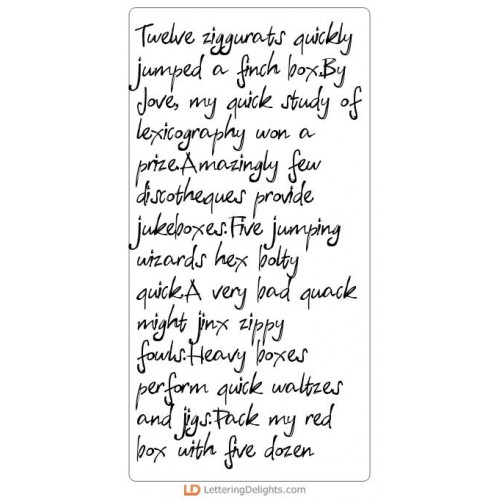 Twelve ziggurats quickly
jumped a finch box.By
Jove, my quick study of
lexicography won a
prize.Amazingly few
discotheques provide
jukeboxes.Five jumping
wizards hex bolty
quick.A very bad quack
might jinx zippy
fowls.Heavy boxes
perform quick waltzes
and jigs.Pack my red
box with five dozen
LD LetteringDelights.com